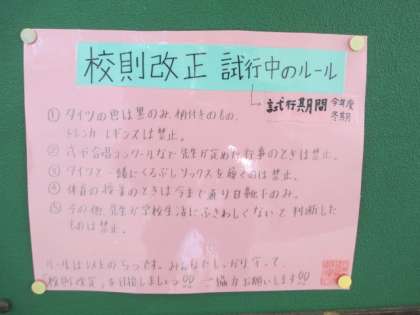 校則改正 試行中のルール
試行期間 今年度
冬期
① タイツの色は黒のみ、柄付きのもの、
トレンカ レギンスは禁止。
② 式や合唱コンクールなど先生が定めた行事のときは禁止。
③ タイツと一緒にくるぶしソックスを履くのは禁止。
④ 体育の授業のときは今まで通り白靴下のみ。
⑤ その他、先生が学校生活にふさわしくないと判断した
ものは禁止。
ルールは以上の5つです。みんなでしっかり守って、
校則改正を目指しましょう!! ご協力お願いします!!